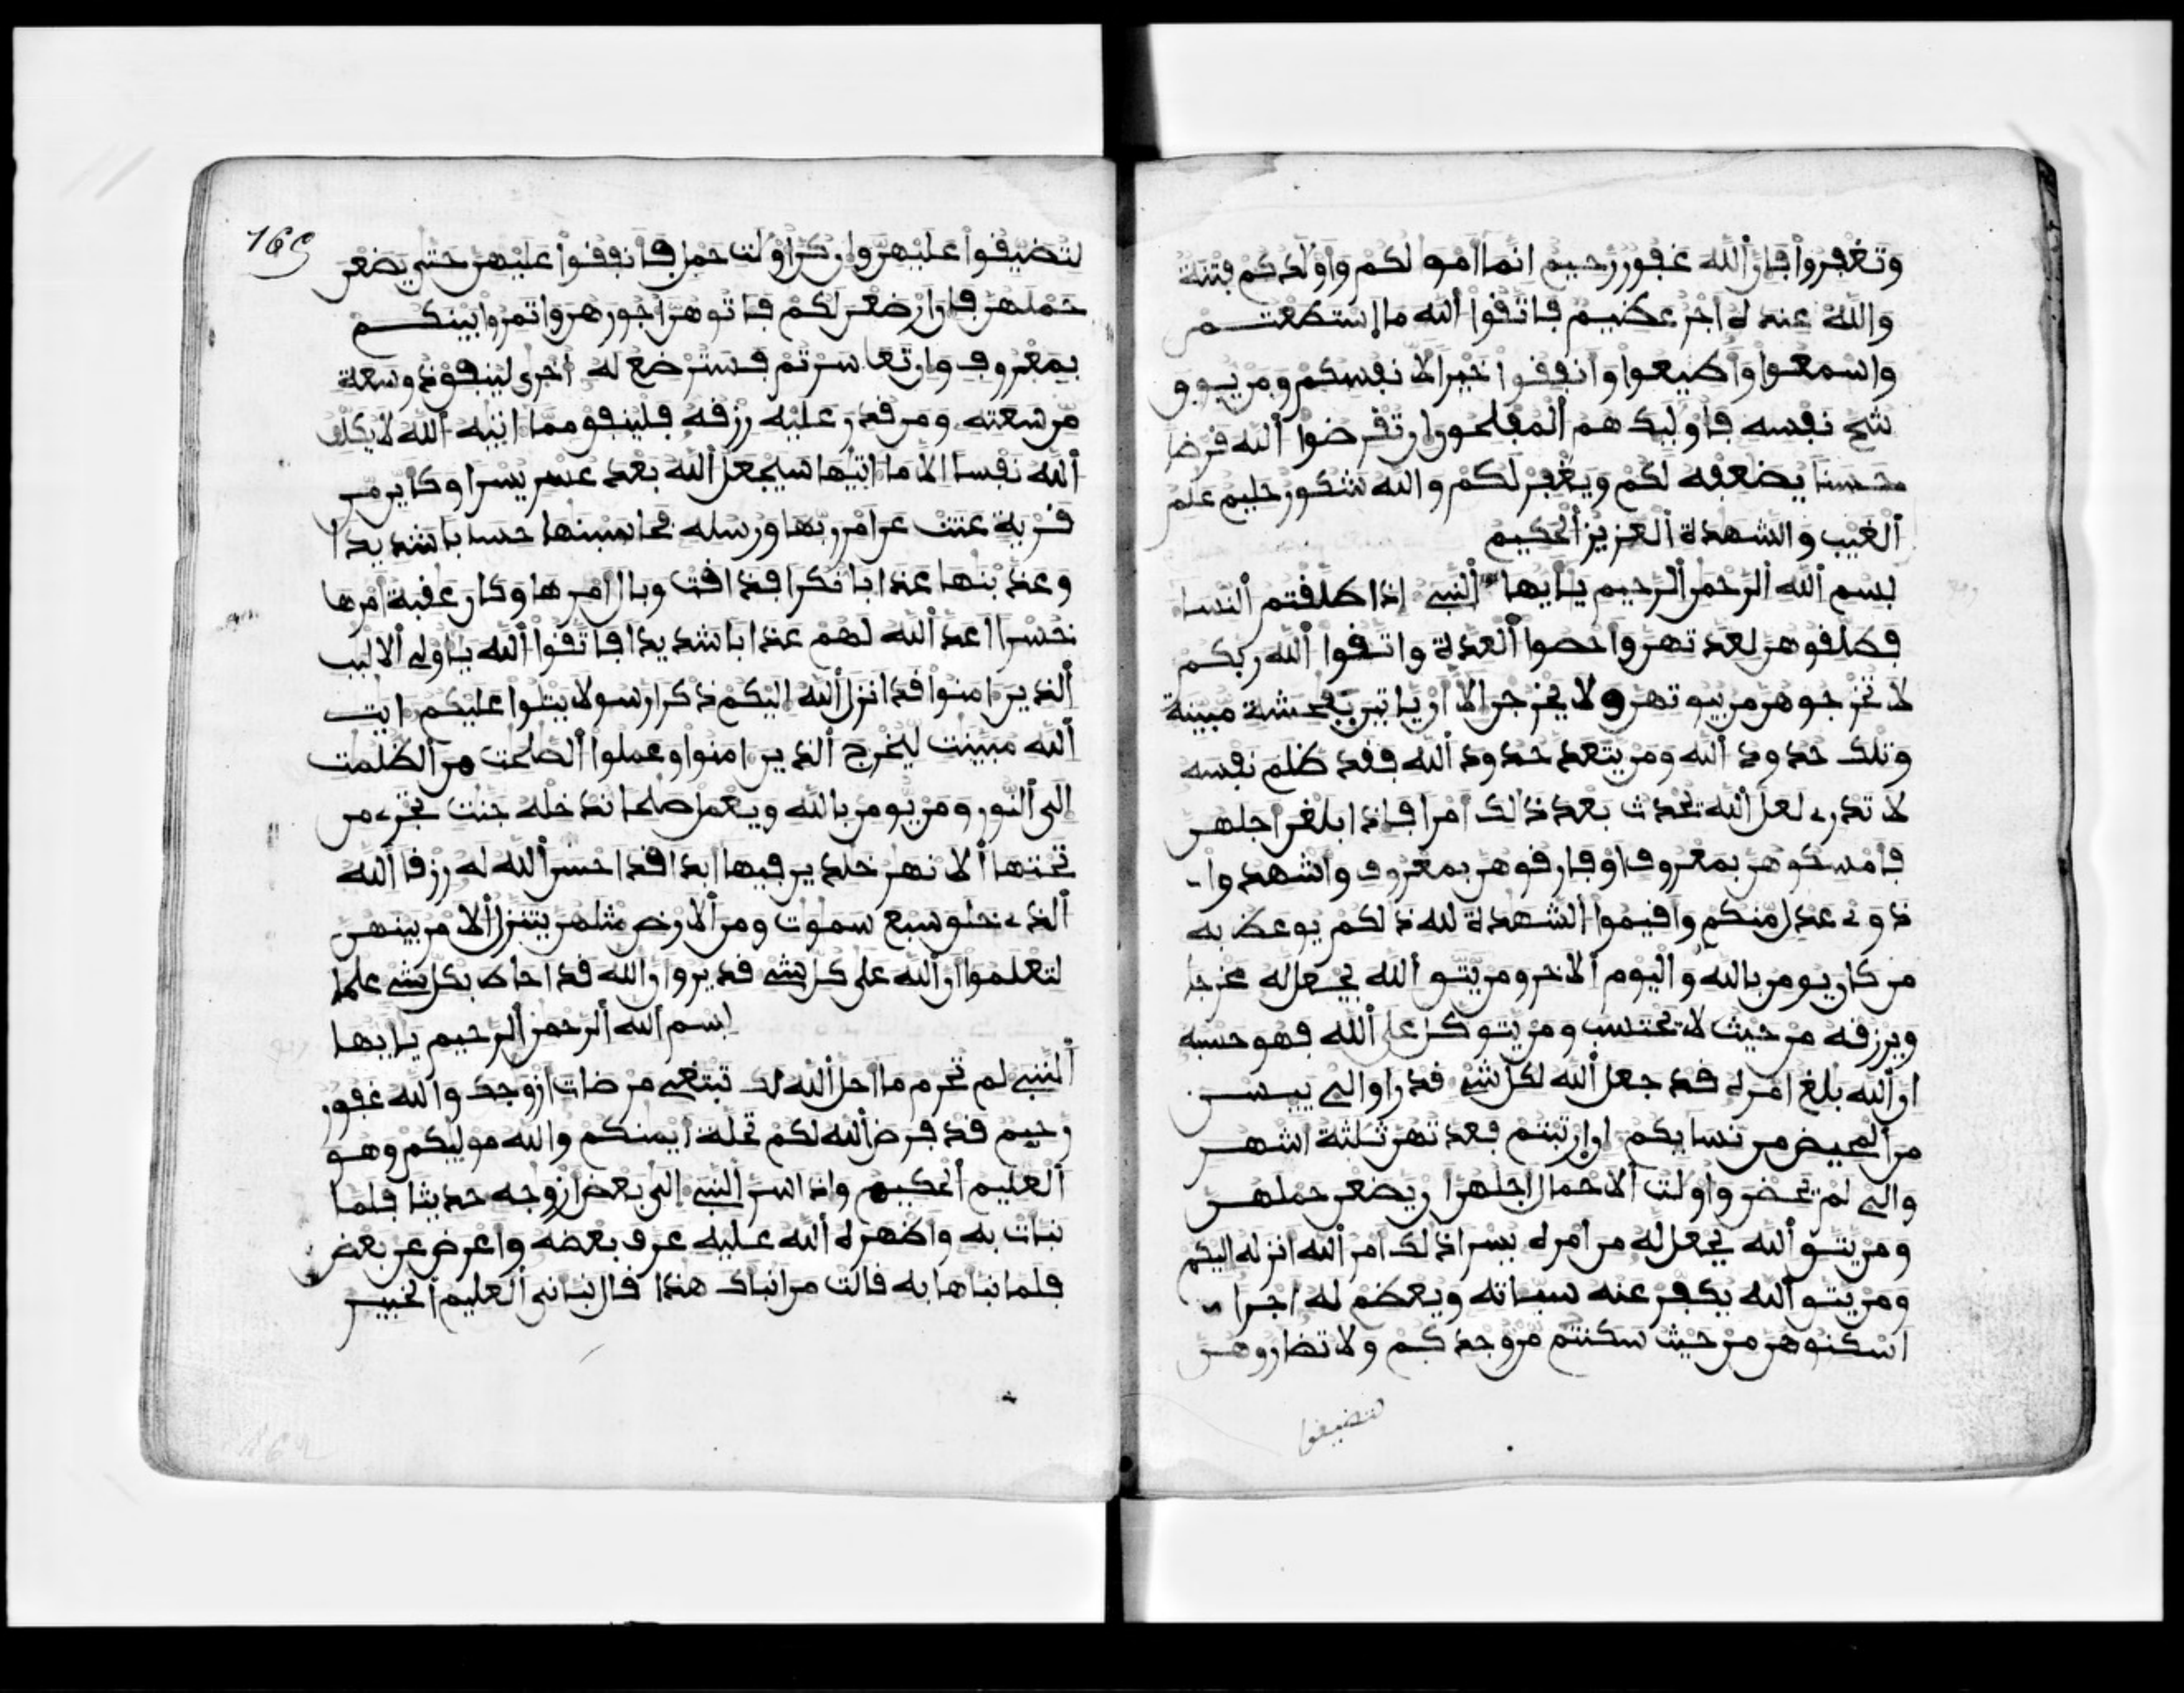 وتغفروا فإن الله غفور رحيم انما امولكم واولدكم فتنة
والله عنده اجر عظيم فاتقوا الله ما استطعتم
واسمعوا واطيعوا وانفقوا خيرا لانفسكم ومن يوق
شح نفسه فاوليك هم المفلحون ان تقرضوا الله قرضا
حسنا يضعفه لكم ويغفر لكم والله شكور حليم علم
الغيب والشهدة العزيز الحكيم
بسم الله الرحمن الرحيم يايها النبي إذا طلقتم النسا
فطلقوهن لعدتهن واحصوا العدة واتقوا الله ربكم
لا تخرجوهن من بيوتهن ولا يخرجن الا ان ياتين بفحشة مبينة
وتلك حدود الله ومن يتعد حدود الله فقد ظلم نفسه
لا تدري لعل الله يحدث بعد ذالك امرا فاذا بلغن اجلهن
فامسكوهن بمعروف او فارقوهن بمعروف واشهدوا
ذوي عدل منكم واقيموا الشهدة لله ذلكم يوعظ به
من كان يومن بالله واليوم الاخر ومن يتق الله يجعل له مخرجا
ويرزقه من حيث لا يحتسب ومن يتوكل على الله فهو حسبه
ان الله بلغ امره قد جعل الله لكل شي قدرا والي ييسن
من المحيض من نسايكم ان ارتبتم فعدتهن ثلثة اشهر
والي لم يحضن واولت الاحمال اجلهن ان يضعن حملهن
ومن يتق الله يجعل له من امره يسرا ذلك امر الله انزله اليكم
ومن يتق الله يكفر عنه سياته ويعظم له اجرا
اسكنوهن من حيث سكنتم من وجدكم ولا تضاروهن
لتضيقوا
169
لتضيقوا عليهن وان كن اولت حمل فانفقوا عليهن حتى يضعن
حملهن فان ارضعن لكم فاتوهن اجورهن واتمروا بينكم
بمعروف وان تعاسرتم فسترضع له اخرى لينفق ذو سعة
من سعته ومن قدر عليه رزقه فلينفق مما اتيه الله لا يكلف
الله نفسا الا ما اتيها سيجعل الله بعد عسر يسرا وكاين من
قرية عتت عن امر ربها ورسله فحاسبنها حسابا شديدا
وعذبنها عذابا نكرا فذاقت وبال امرها وكان عقبة امرها
خسرا اعد الله لهم عذابا شديدا فاتقوا الله ياولي الالبب
الذين امنوا قد انزل الله اليكم ذكرا رسولا يتلوا عليكم ايت
الله مبينت ليخرج الذين امنوا وعملوا الصلحت من الظلمت
الى النور ومن يومن بالله ويعمل صلحا ندخله جنت تجري من
تحتها الانهر خلدين فيها ابدا قد احسن الله له رزقا الله
الذي خلق سبع سموت ومن الارض مثلهن يتنزل الامر بينهن
لتعلموا ان الله على كل شي قدير وان الله قد احاط بكل شي علما
بسم الله الرحمن الرحيم يايها
النبي لم تحرم ما احل الله لك تبتغي مرضات ازوجك والله غفور
رحيم قد فرض الله لكم تحلة ايمنكم والله موليكم وهو
العليم الحكيم واذ اسر النبي الى بعض ازوجه حديثا فلما
نبات به واظهره الله عليه عرف بعضه واعرض عن بعض
فلما نباها به قالت من انباك هذا قال نباني العليم الخبير